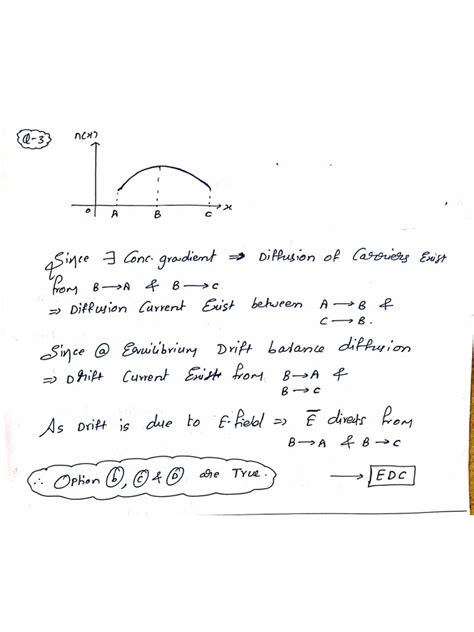 Q-3
n(x)
0 A B C x
Since ∃ Conc. gradient ⇒ Diffusion of Carriers Exist
from B→A & B→C
⇒ Diffusion Current Exist between A→B &
C→B.
Since @ Equilibrium Drift balance diffusion
⇒ Drift Current Exist from B→A &
B→C
As Drift is due to E-field ⇒ E̅ directs from
B→A & B→C
∴ Option ⓑ, ⓒ & ⓓ are True.
→ EDC